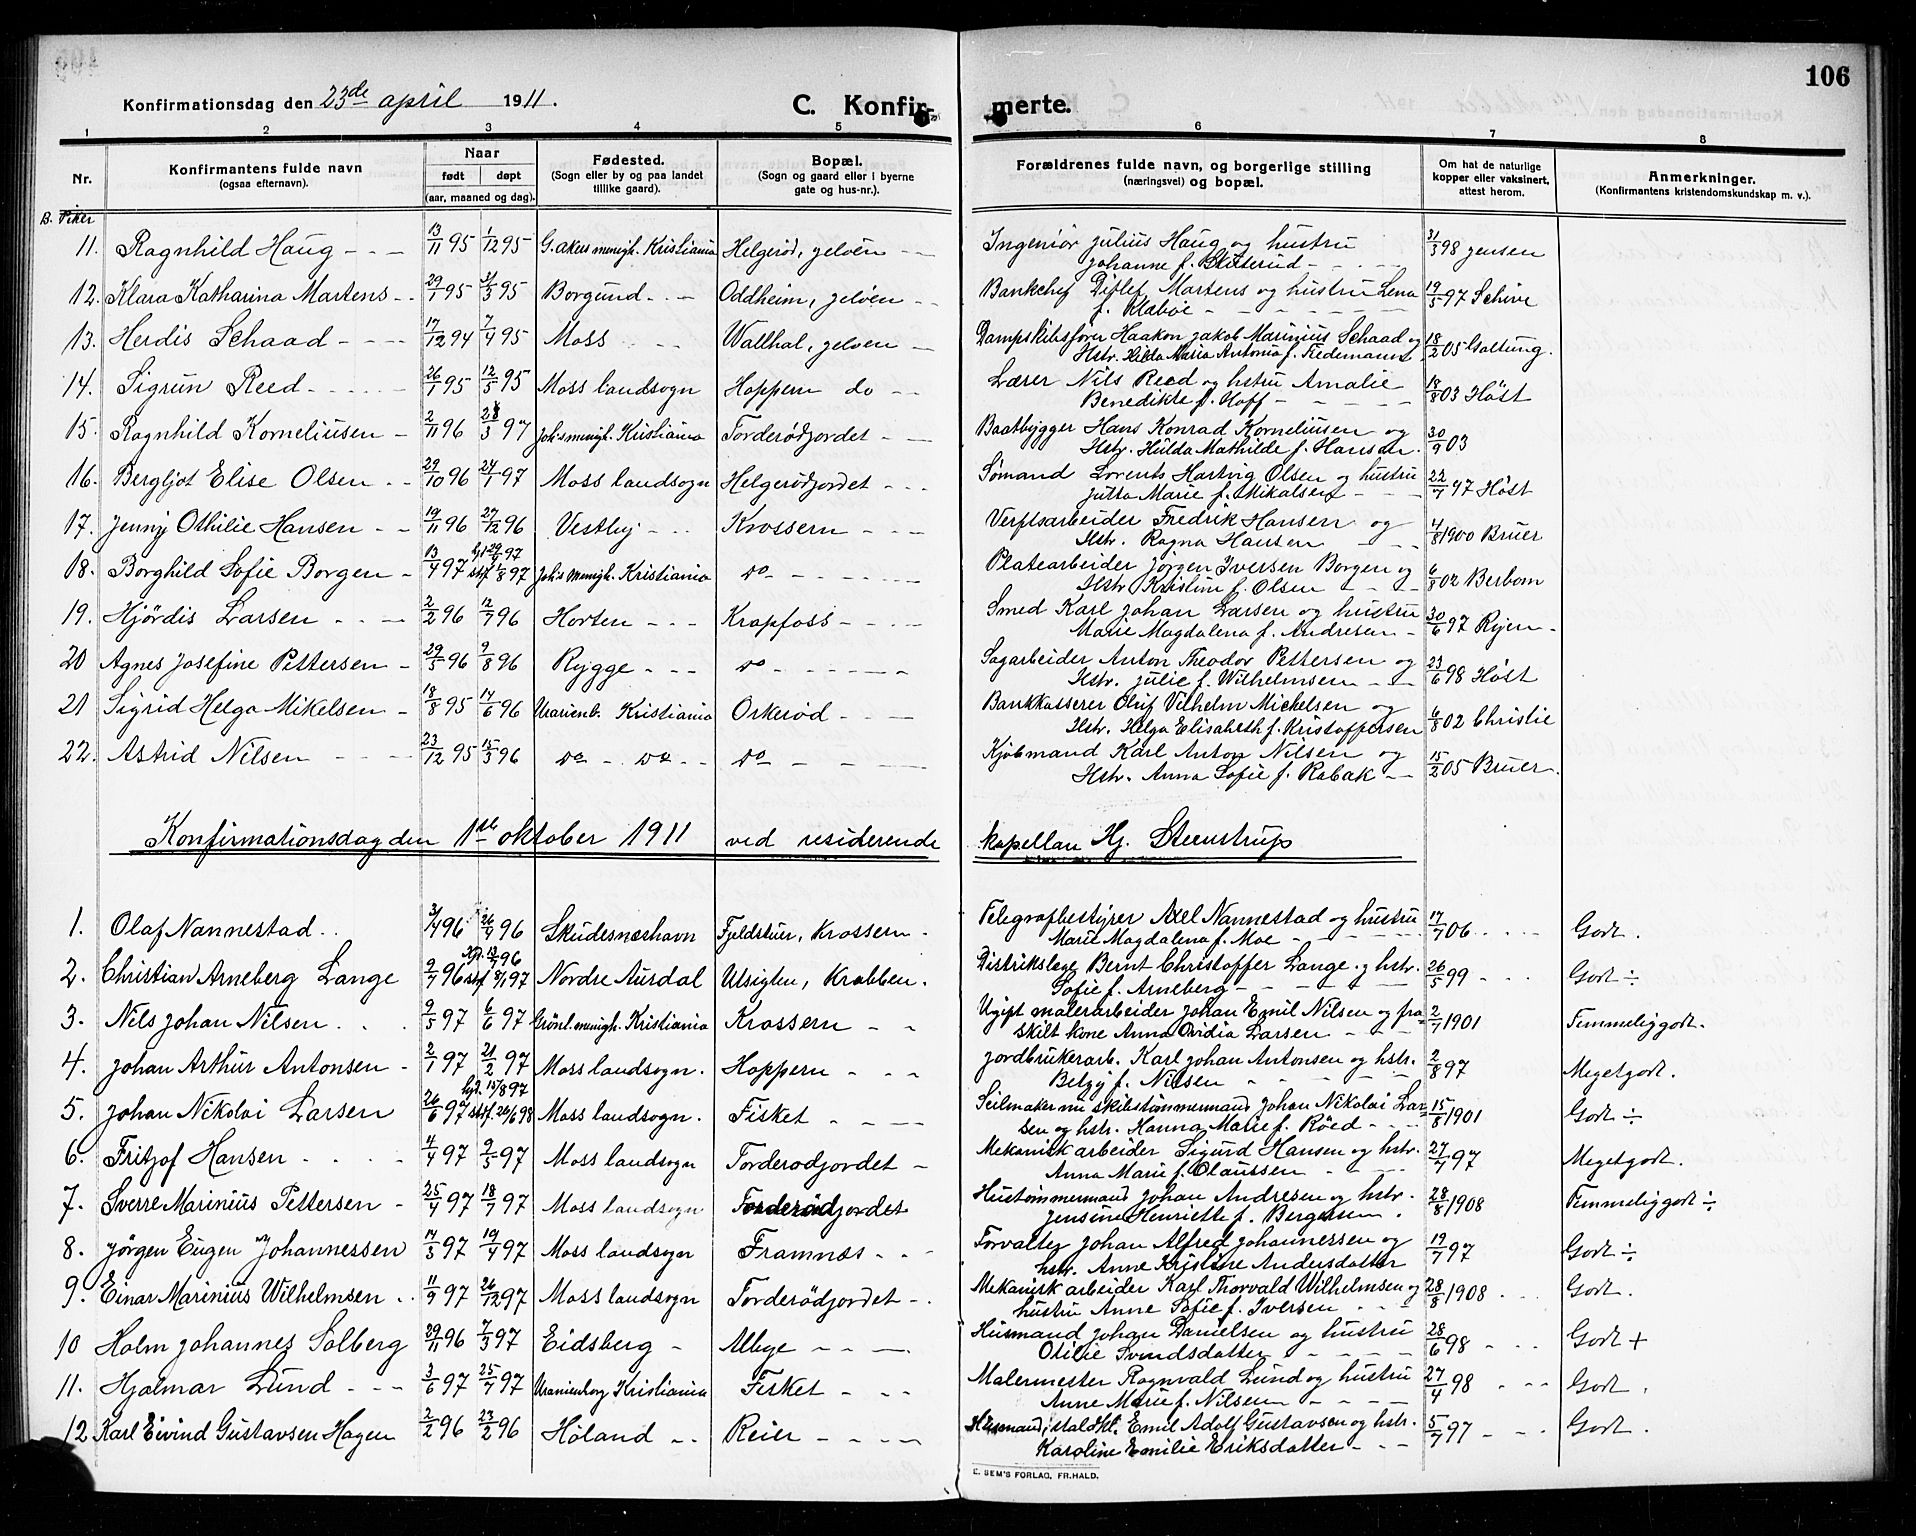 106
Konfirmationsdag den 23de april 1911.
C. Konfirmerte.
1 2 3 4 5 6 7 8
Nr.
Konfirmantens fulde navn
(ogsaa efternavn).
Naar
født døpt
(aar, maaned og dag).
Fødested.
(Sogn eller by og paa landet
tillike gaard).
Bopæl.
(Sogn og gaard eller i byerne
gate og hus-nr.).
Forældrenes fulde navn, og borgerlige stilling
(næringsvei) og bopæl.
Om hat de naturlige
kopper eller vaksinert,
attest herom.
Anmerkninger.
(Konfirmantens kristendomskundskap m. v.).
B. Piker
11. Ragnhild Haug - - - 13/11 95 1/12 95 G. akers menigh. Kristiania Helgerød, jeløen - - Ingeniør Julius Haug og hustru 31/3 98 Jensen
Johanne f.
12. Klara Katharina Martens - - 29/1 95 31/3 95 Borgund - - - Oddheim, jeløen - - Bankchef Ditlef Martens og hustru Lena 19/5 97 Schive
f. Klaboe - - -
13. Herdis Schaad - - - 17/12 94 7/4 95 Moss - - - Wallhal, jeløen - Dampskibsfører Haakon Jakob Marinius Schaad og 18/2 05 Galtung.
Hstr. Hilda Maria Antonia f. Tiedemann
14. Sigrun Reed - - - 26/1 95 12/5 95 Moss landsogn Hoppern do - - Lærer Nils Reed og hstru Amalie 18/8 03 Høst
Benedikte f. Hoff - - -
15. Ragnhild Korneliusen - 2/11 96 28/3 97 Joh's menigh. Kristiania Torderødjordet - - Baatbygger Hans Konrad Korneliusen og 30/9 03
Hstr. Hulda Mathilde f. Hansen.
16. Bergljot Elise Olsen - - 29/10 96 24/1 97 Moss landsogn Helgerødjordet - - - Sømand Lorents Hartvig Olsen og hustru 22/7 97 Høst
Jutta Marie f. Mikalsen - - -
17. Jenny Othilie Hansen - - 19/11 96 27/12 96 Vestby - - - Krossern - - - Verftsarbeider Fredrik Hansen og 4/8 1900 Bruer
Hstr. Ragna Hansen - - -
18. Borghild Sofie Borgen - 13/4 97 hjd. 29/4 97 stf. 1/8 97 Joh's menigh. Kristiania do - - - Platearbeider Jørgen Iversen Borgen og 6/8 02 Berbom
Hstr. Kristine f. Olsen - - -
19. Hjördis Larsen - - - 2/2 96 12/7 96 Horten - - - Krapfoss - - - Smed Karl Johan Larsen og hustru 30/6 97 Ryen -
Marie Magdalena f. Andresen -
20 Agnes Josefine Pettersen - 29/5 96 9/8 96 Rygge - - - do - - - Sagarbeider Anton Theodor Pettersen og 23/6 98 Høst
Hstr. Julie f. Wilhelmsen - -
21 Sigrid Helga Mikelsen - 18/8 95 14/6 96 Uranienb. Kristiania Orkerød - - - Bankkasserer Oluf Vilhelm Michelsen og 6/8 02 Christie
Hstr. Helga Elisabeth f. Kristoffersen
22. Astrid Nilsen - - - 23/12 95 15/3 96 do - do - - do - - - Kjøbmand Karl Anton Nilsen og 15/2 05 Bruer.
Hstr. Anna Sofie f. Rabak - -
Konfirmationsdag den 1ste oktober 1911 ved residerende kapellan Hj. Steenstrup
1. Olaf Nannestad. . 3/4 96 26/4 96 Skudesneshavn Fjeldstuer, Krossern - Telegrafbestyrer Axel Nannestad og hustru 17/7 06 - - Godt.
Marie Magdalena f. Moe - - -
2. Christian Arneberg Lange 9/7 96 hjd. 12/7 96 stf. 8/1 97 Nordre Aurdal Utsigten, Krabben. Distriktslæge Bernt Christoffer Lange og hstr. 26/5 99 - - Godt ÷
Sofie f. Arneberg - - -
3. Nils Johan Nilsen . . 2/5 97 6/6 97 Grønl. menigh. Kristiania Krossern - - Ugift malerarbeider Johan Emil Nilsen og fra= 2/7 1901 Temmelig godt.
skilt kone Anna Ovidia Larsen - -
4. Johan Arthur Antonsen - 2/1 97 21/2 97 Moss landsogn. Hoppern - - - Jordbrukerarb. Karl Johan Antonsen og hstr. 2/8 97 Meget godt.
Betzy f. Nilsen - - -
5. Johan Nikolai Larsen 26/6 97 hjd. 15/8 97 stf. 26/6 98 Moss landsogn. Fisket - - - Seilmaker nu skibstømmermand Johan Nikolai Lar= 15/8 1901 Godt ÷
sen og hstr. Hanna Marie f. Røed - - -
6. Fritjof Hansen - . . 4/4 97 9/5 97 Moss landsogn Torderødjordet - Mekanisk arbeider Sigurd Hansen og hstr. 27/7 97 Meget godt.
Anna Marie f. Claussen - - -
7. Sverre Marinius Pettersen - 25/4 97 18/7 97 Moss landsogn Torderødjordet Hustømmermand Johan Andresen og hstr. 28/8 1908 Temmelig godt ÷
Jensine Henriette f. Bergersen.
8. Jørgen Eugen Johannessen 14/3 97 19/4 97 Moss landsogn Framnæs - - - Forvalter Johan Alfred Johannessen og 19/7 97 Godt ÷
hstr. Anne Kristine Andersdatter
9. Einar Marinius Wilhelmsen . . 11/9 97 26/12 97 Moss landsogn Torderødjordet - . Mekanisk arbeider Karl Thorvald Wilhelmsen og 28/8 1908 - - Godt.
hustru Anne Sofie f. Iversen - - -
10 Holm Johannes Solberg 29/11 96 7/3 97 Eidsberg - Albye - - - Husmand Johan Danielsen og hustru 28/6 98 - - Godt +
Otilie Svendsdatter - - -
11. Hjalmar Lund - - - 3/6 97 25/7 97 Uranienborg Kristiania Fisket - - - Malermester Ragnvald Lund og hustru 27/4 98 - - Godt.
Anne Marie f. Nilsen - - -
12 Karl Eivind Gustavsen Hagen 2/2 96 23/2 96 Höland - - Reier - - - Husmand, staldkt. Emil Adolf Gustavsen og hstr. 5/7 97 - - Godt.
Karoline Emilie Eriksdatter - - -
E. SEM'S FORLAG, FR.HALD.